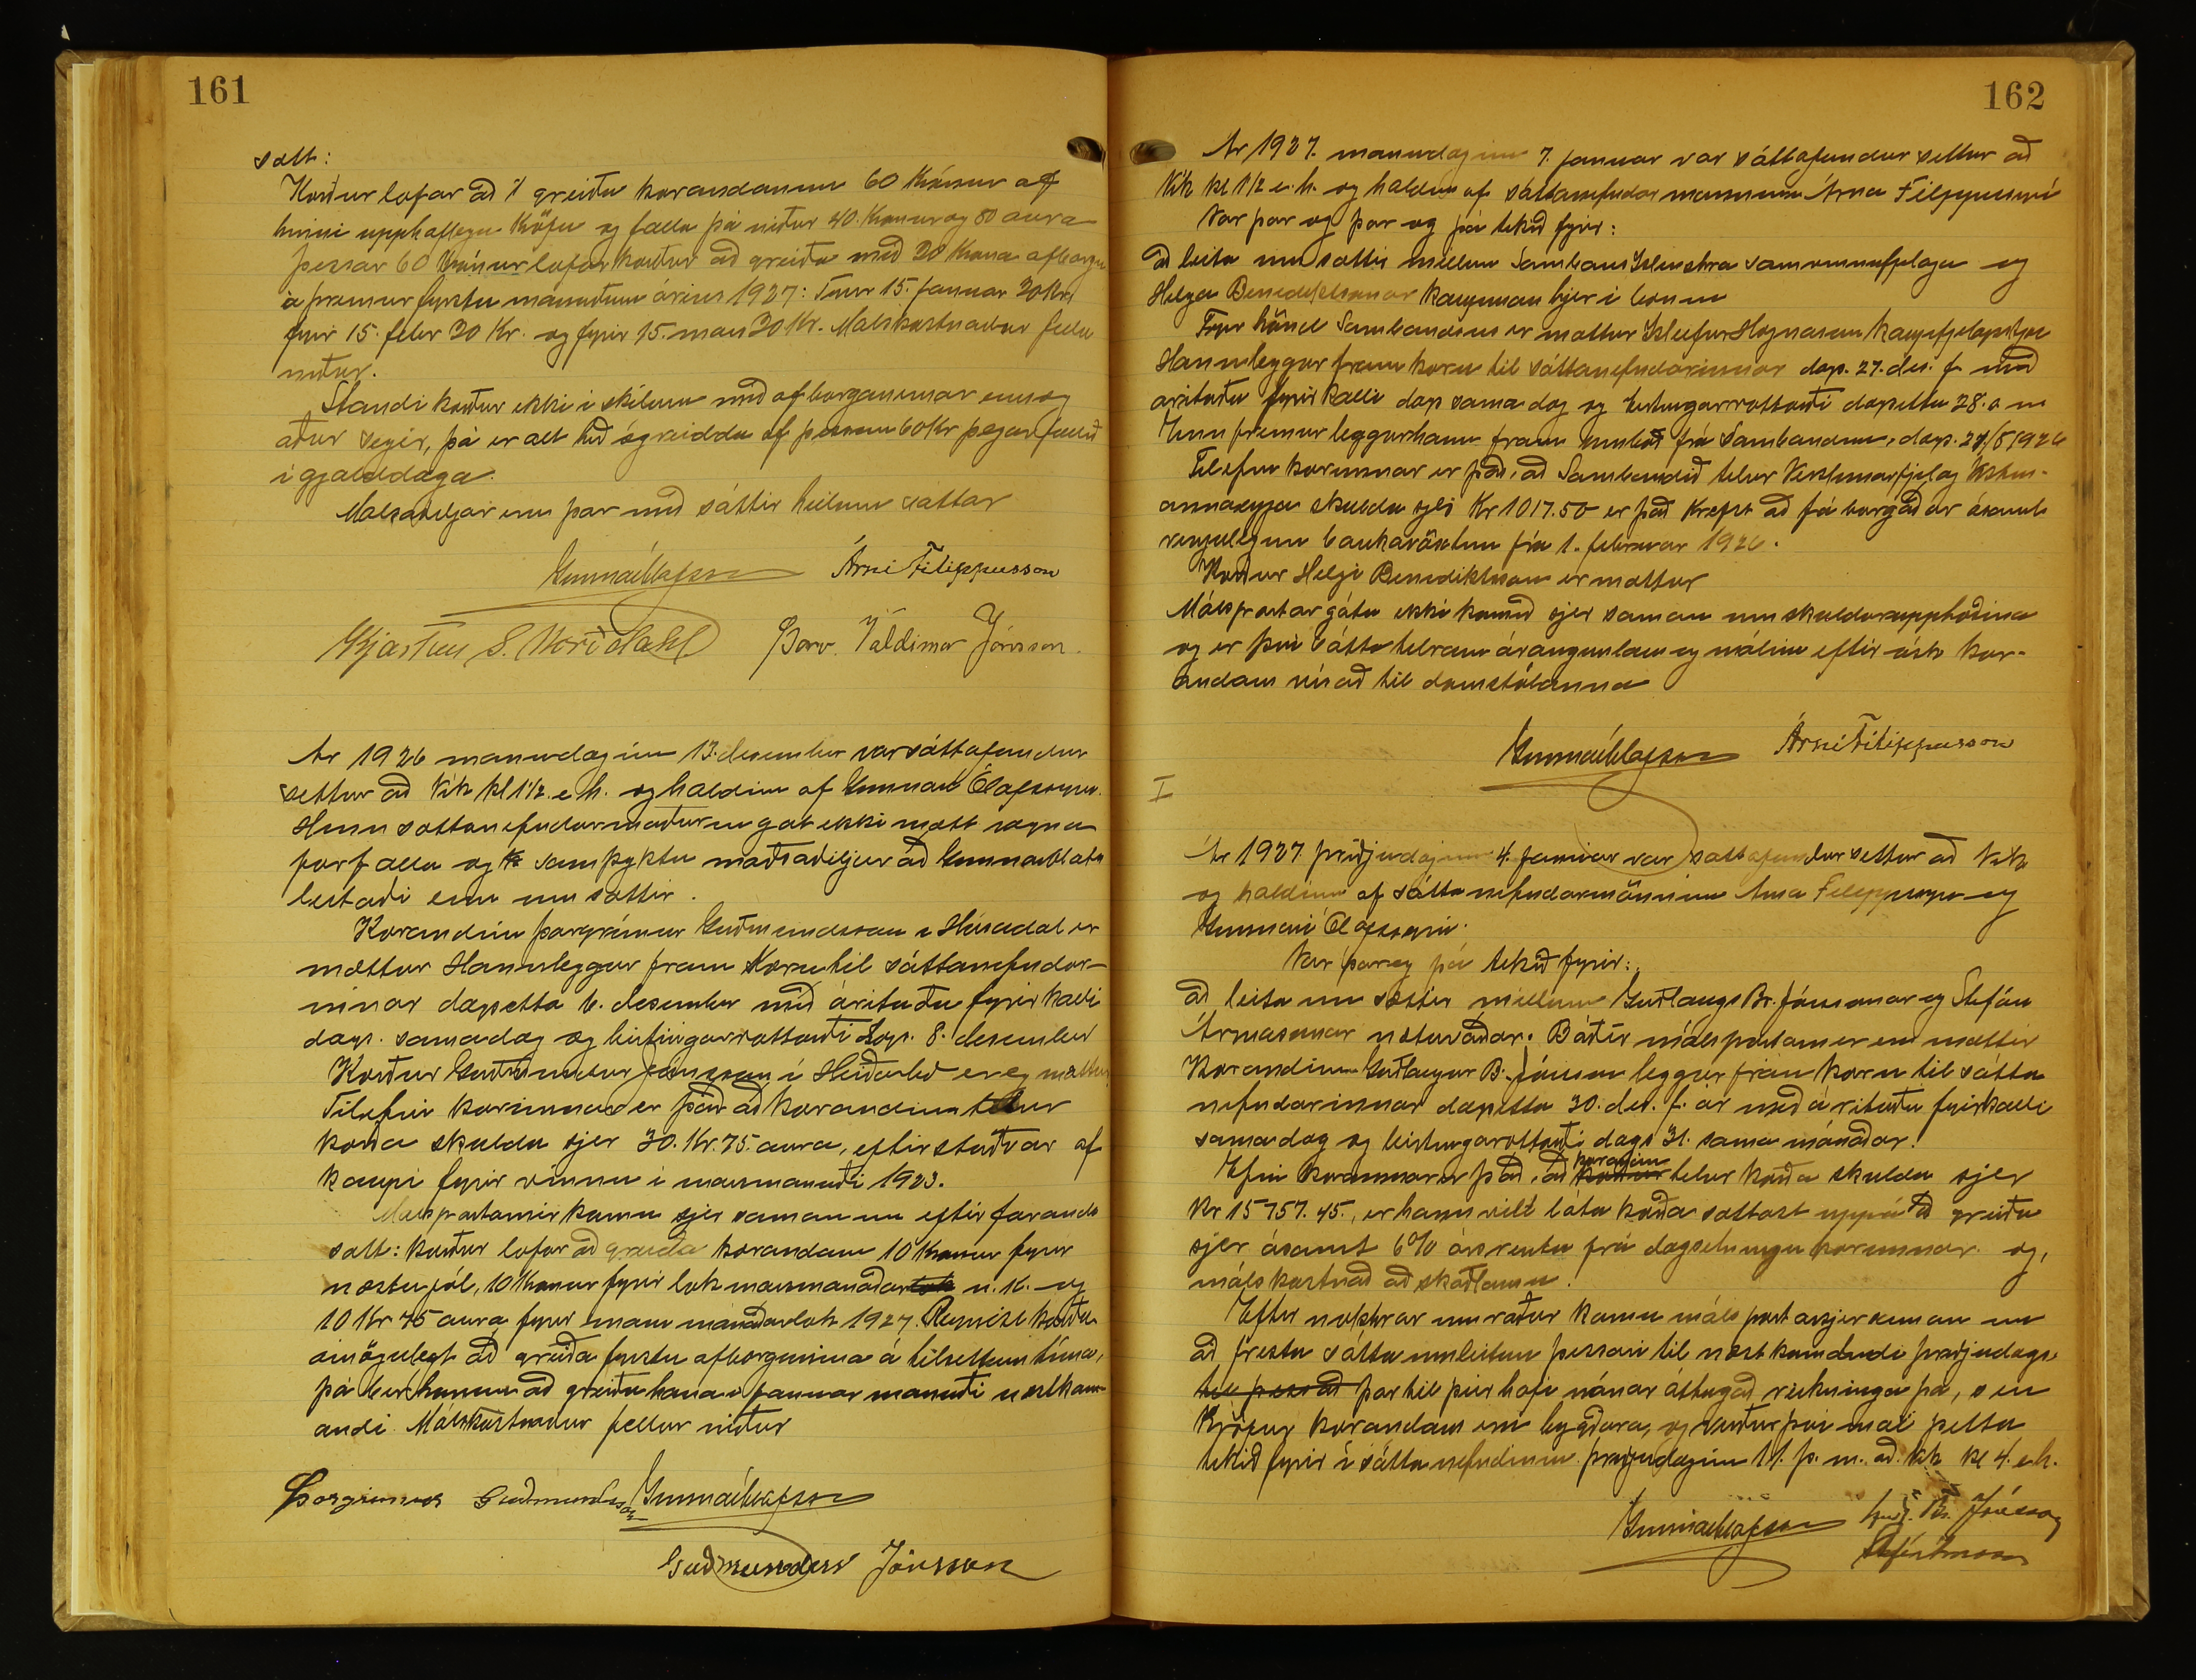 161
sátt:
Kærður lofar að greiða kærandanum 60 krónur af
hinni upphaflegu kröfu og falla þá niður 40. krónur og 50 aura
Þessar 60 krónur lofar kærður að greiða með 20 króna afborgun
á þremur fyrstu mánuðum ársins 1927: Fyrir 15. januar 20 kr.
fyrir 15. febr 20 Kr. og fyrir 15. mars 20 Kr. Málskostnaður falli
niður.
Standi kærður ekki í skilum með afborganirnar eins og
aður segir, þá er alt hið ógreidda af þessum 60 Kr þegar fallið
í gjalddaga.
Málsaðiljar eru þar með sáttir heilum sáttar
Gunnar Ólafsson Árni Filippusson
Kjartan S. Norðdahl Þorv. Valdimar Jónsson.
Ár 1926 manudaginn 13. desember var sáttafundur
settur að Vík kl 1 1/2 e.h. og haldinn af Gunnari Ólafssyni.
Hinn sáttanefndarmaðurinn gat ekki mætt vegna
forfalla og samþyktu málsaðiljar að Gunnar Ólafs
leitaði einn um sættir.
Kærandinn Þorgrímur Guðmundsson í Húsadal er
mættur Hann leggur fram kæru til sáttanefndar-
innar dagsetta 6. desember með árituðu fyrirkalli
dags. samadag og birtingarvottorði dags. 8. desember
Kærður Guðmundur Jónsson í Heiðarbæ er og mættur
Tilefni kærunnar er það að kærandinn telur
kærða skulda sjer 30. Kr. 75. aura, eftirstöðvar af
kaupi fyrir vinnu í marsmanuði 1923.
Málspartarnir komu sjer saman um eftirfarandi
sátt: Kærður lofar að greiða kærandanum 10 krónur fyrir
næstu jól, 10 krónur fyrir lok marsmánaðar n.k. og
10 Kr 75 aura fyrir maí mánaðarlok 1927. Reynist kærða
ómögulegt að greiða fyrstu afborgunina á tilsettum tíma,
þá ber honum að greiða hana í januar manuði næstkom-
andi. Málskostnaður fellur niður
Þorgrímur Guðmundsson Gunnar Ólafsson
Guðmundur Jónsson
162
Ár 1927. manudaginn 7. januar var sáttafundur settur að
Vík kl 1 1/2 e.h. og haldinn af sáttanefndarmönnum Árna Filippussyni
Var þar og þá tekið fyrir:
að leita um sættir millum Sambans Íslenskra samvinnufjelaga og
Helga Benediktssonar kaupmanns hjer í bænum
Fyrir hönd Sambandsins er mættur Ísleifur Högnason kaupfjelagsstjóri
Hann leggur fram kæru til sáttanefndarinnar dags. 27. des. f. með
árituðu fyrirkalli dags sama dag og birtingarvottorði dagsettu 28. s m
Ennfremur leggur hann fram umboð frá Sambandinu, dags. 27/5 1926
Tilefni kærunnar er það, að Sambandið telur Verslunarfjelag Vestm-
annaeyja skulda sjer Kr 1017.50 er það krefst að fá borgaðar ásamt
venjulegum bankavöxtum frá 1. februar 1926.
Kærður Helgi Benediktsson er mættur
Málspartar gátu ekki komið sjer saman um skuldarupphæðina
og er því sáttatilraun árangurslaus og málinu eftir ósk kær-
andans vísað til dómstólanna
Gunnar Ólafsson Árni Filippusson
I
Ár 1927 þriðjudaginn 4. januar var sáttafundur settur að Vík
og haldinn af sáttanefndarmönnum Árna Filippussyni og
Gunnari Ólafssyni.
Var þar og þá tekið fyrir:
að leita um sættir millum Guðlaugs Br. Jónssonar og Stefáns
Árnasonar næturvarðar. Báðir málspartarnir eru mættir
Kærandinn Guðlaugur B. Jónsson leggur fram kæru til sátta
nefndarinnar dagsetta 30. des. f. ár með árituðu fyrirkalli
samadag og birtingarvottorði dags 31. sama mánaðar.
Efni kærunnar er það, að kærandinn telur kærða skulda sjer
Kr 15757.45., er hann vill láta kærða sættast uppá að greiða
sjer ásamt 6% ársrentu frá dagsetningu kærunnar og,
málskostnað að skaðlausu.
Eftir nokkrar umræður komu málspartar sjer saman um
að fresta sáttaumleitun þessari til næstkomandi þriðjudags,
til þess að þar til þeir hafi nánar athugað reikninga þá, sem
kröfur kærandans eru bygðar á, og verður þá mál þetta
tekið fyrir í sáttanefndinni þriðjudaginn 11. þ. m. að Vík kl 4. e.h.
Gunnar Ólafsson Guðl. Br. Jónsson
Stefán Árnason